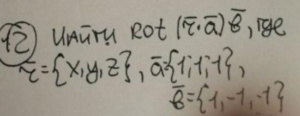 12) Найти rot (r̄·ā)b̄, где
r̄={x,y,z}, ā={1,1,1},
b̄={1,-1,-1}